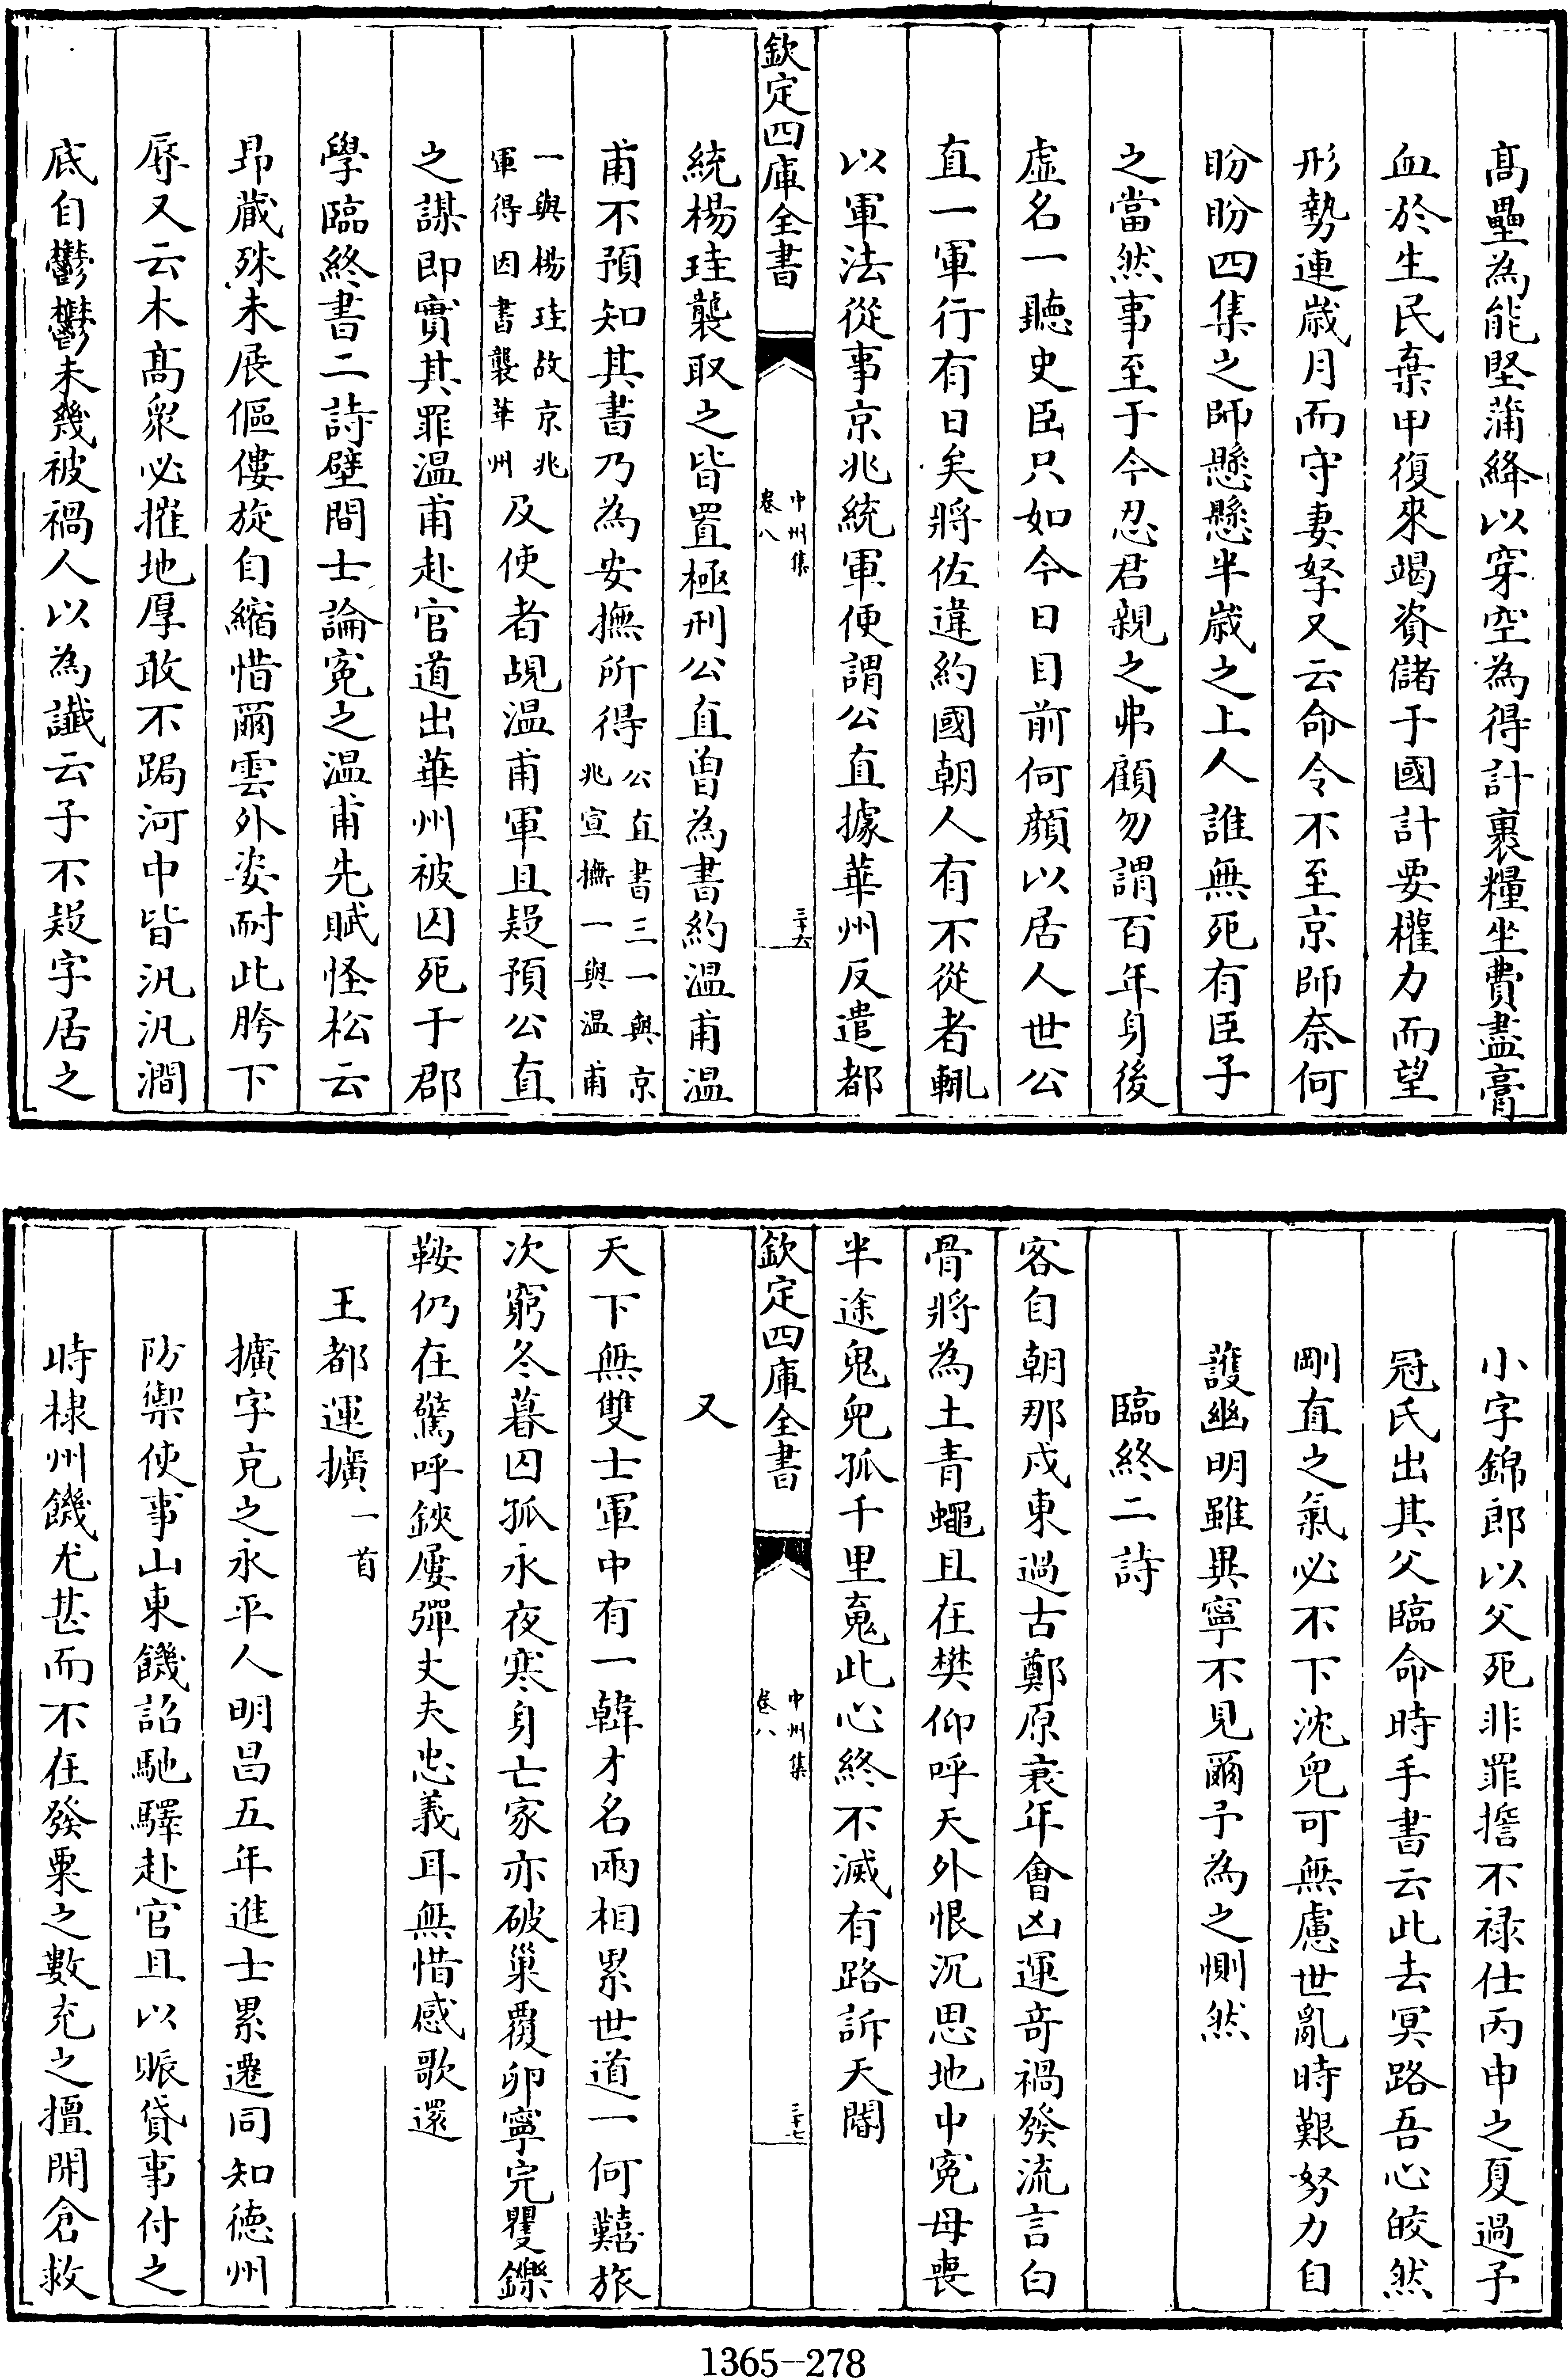 髙壘為能堅蒲絳以穿空為得計裹糧坐費盡膏
血於生民棄甲復來竭資儲于國計要權力而望
形勢連嵗月而守妻孥又云命令不至京師奈何
盼盼四集之師懸懸半嵗之上人誰無死有臣子
之當然事至于今忍君親之弗顧勿謂百年身後
虛名一聽史臣只如今日目前何顔以居人世公
直一軍行有日矣將佐違約國朝人有不從者輒
以軍法從事京兆統軍便謂公直據華州反遣都
欽定四庫全書
中州集
卷八
三十六
統楊珪襲取之皆置極刑公直曽為書約温甫温
甫不預知其書乃為安撫所得公直書三一與京
兆宣撫一與温甫
一與楊珪故京兆
軍得因書襲華州及使者覘温甫軍且疑預公直
之謀即實其罪温甫赴官道出華州被囚死于郡
學臨終書二詩壁間士論寃之温甫先賦怪松云
昻藏殊未展傴僂旋自縮惜爾雲外姿耐此胯下
辱又云木髙衆必摧地厚敢不跼河中皆汎汎澗
底自鬱鬱未幾被禍人以為讖云子不疑字居之
小字錦郎以父死非罪擔不禄仕丙申之夏過予
冠氏出其父臨命時手書云此去冥路吾心皎然
剛直之氣必不下沈兒可無慮世亂時艱努力自
護幽明雖異寧不見爾予為之惻然
臨終二詩
客自朝那戍東過古鄭原衰年會凶運竒禍發流言白
骨將為土青蠅且在樊仰呼天外恨沉思地中寃母喪
半途鬼兒孤千里䰟此心終不滅有路訴天閽
欽定四庫全書
中州集
卷八
三十七
又
天下無雙士軍中有一韓才名兩相累世道一何囏旅
次窮冬暮囚孤永夜寒身亡家亦破巢覆卵寧完矍鑠
鞍仍在驚呼鋏屢彈丈夫忠義耳無惜感歌還
王都運擴一首
擴字克之永平人明昌五年進士累遷同知徳州
防禦使事山東饑詔馳驛赴官且以賑貸事付之
時棣州饑尤甚而不在發粟之數充之擅開倉救
1365-278